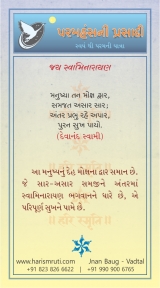 પરમહંસની પ્રસાદી
સ્વયં થી ધામની યાત્રા
જય સ્વામિનારાયણ
મનુષ્યા તન મોક્ષ દ્વાર,
સમજત અસાર સાર;
અંતર પ્રભુ રહે અધાર,
પુરન સુખ પાયો.
(દેવાનંદ સ્વામી)
આ મનુષ્યનું દેહ મોક્ષના દ્વાર સમાન છે.
જે સાર-અસાર સમજીને અંતરમાં
સ્વામિનારાયણ ભગવાનને ધારે છે, એ
પરિપૂર્ણ સુખને પામે છે.
www.harismruti.com
Jnan Baug - Vadtal
+91 823 826 6622
+91 990 900 6765